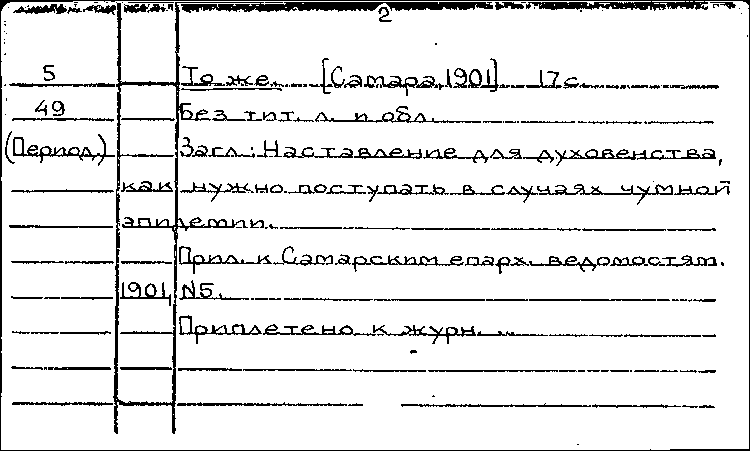 2
5 То же. [Самара, 1901] 17с.
49 Без тит. л. и обл.
(Период.) Загл.: Наставление для духовенства,
как нужно поступать в случаях чумной
эпидемии.
Прил. к Самарским епарх. ведомостям.
1901, N5.
Приплетено к журн. ...